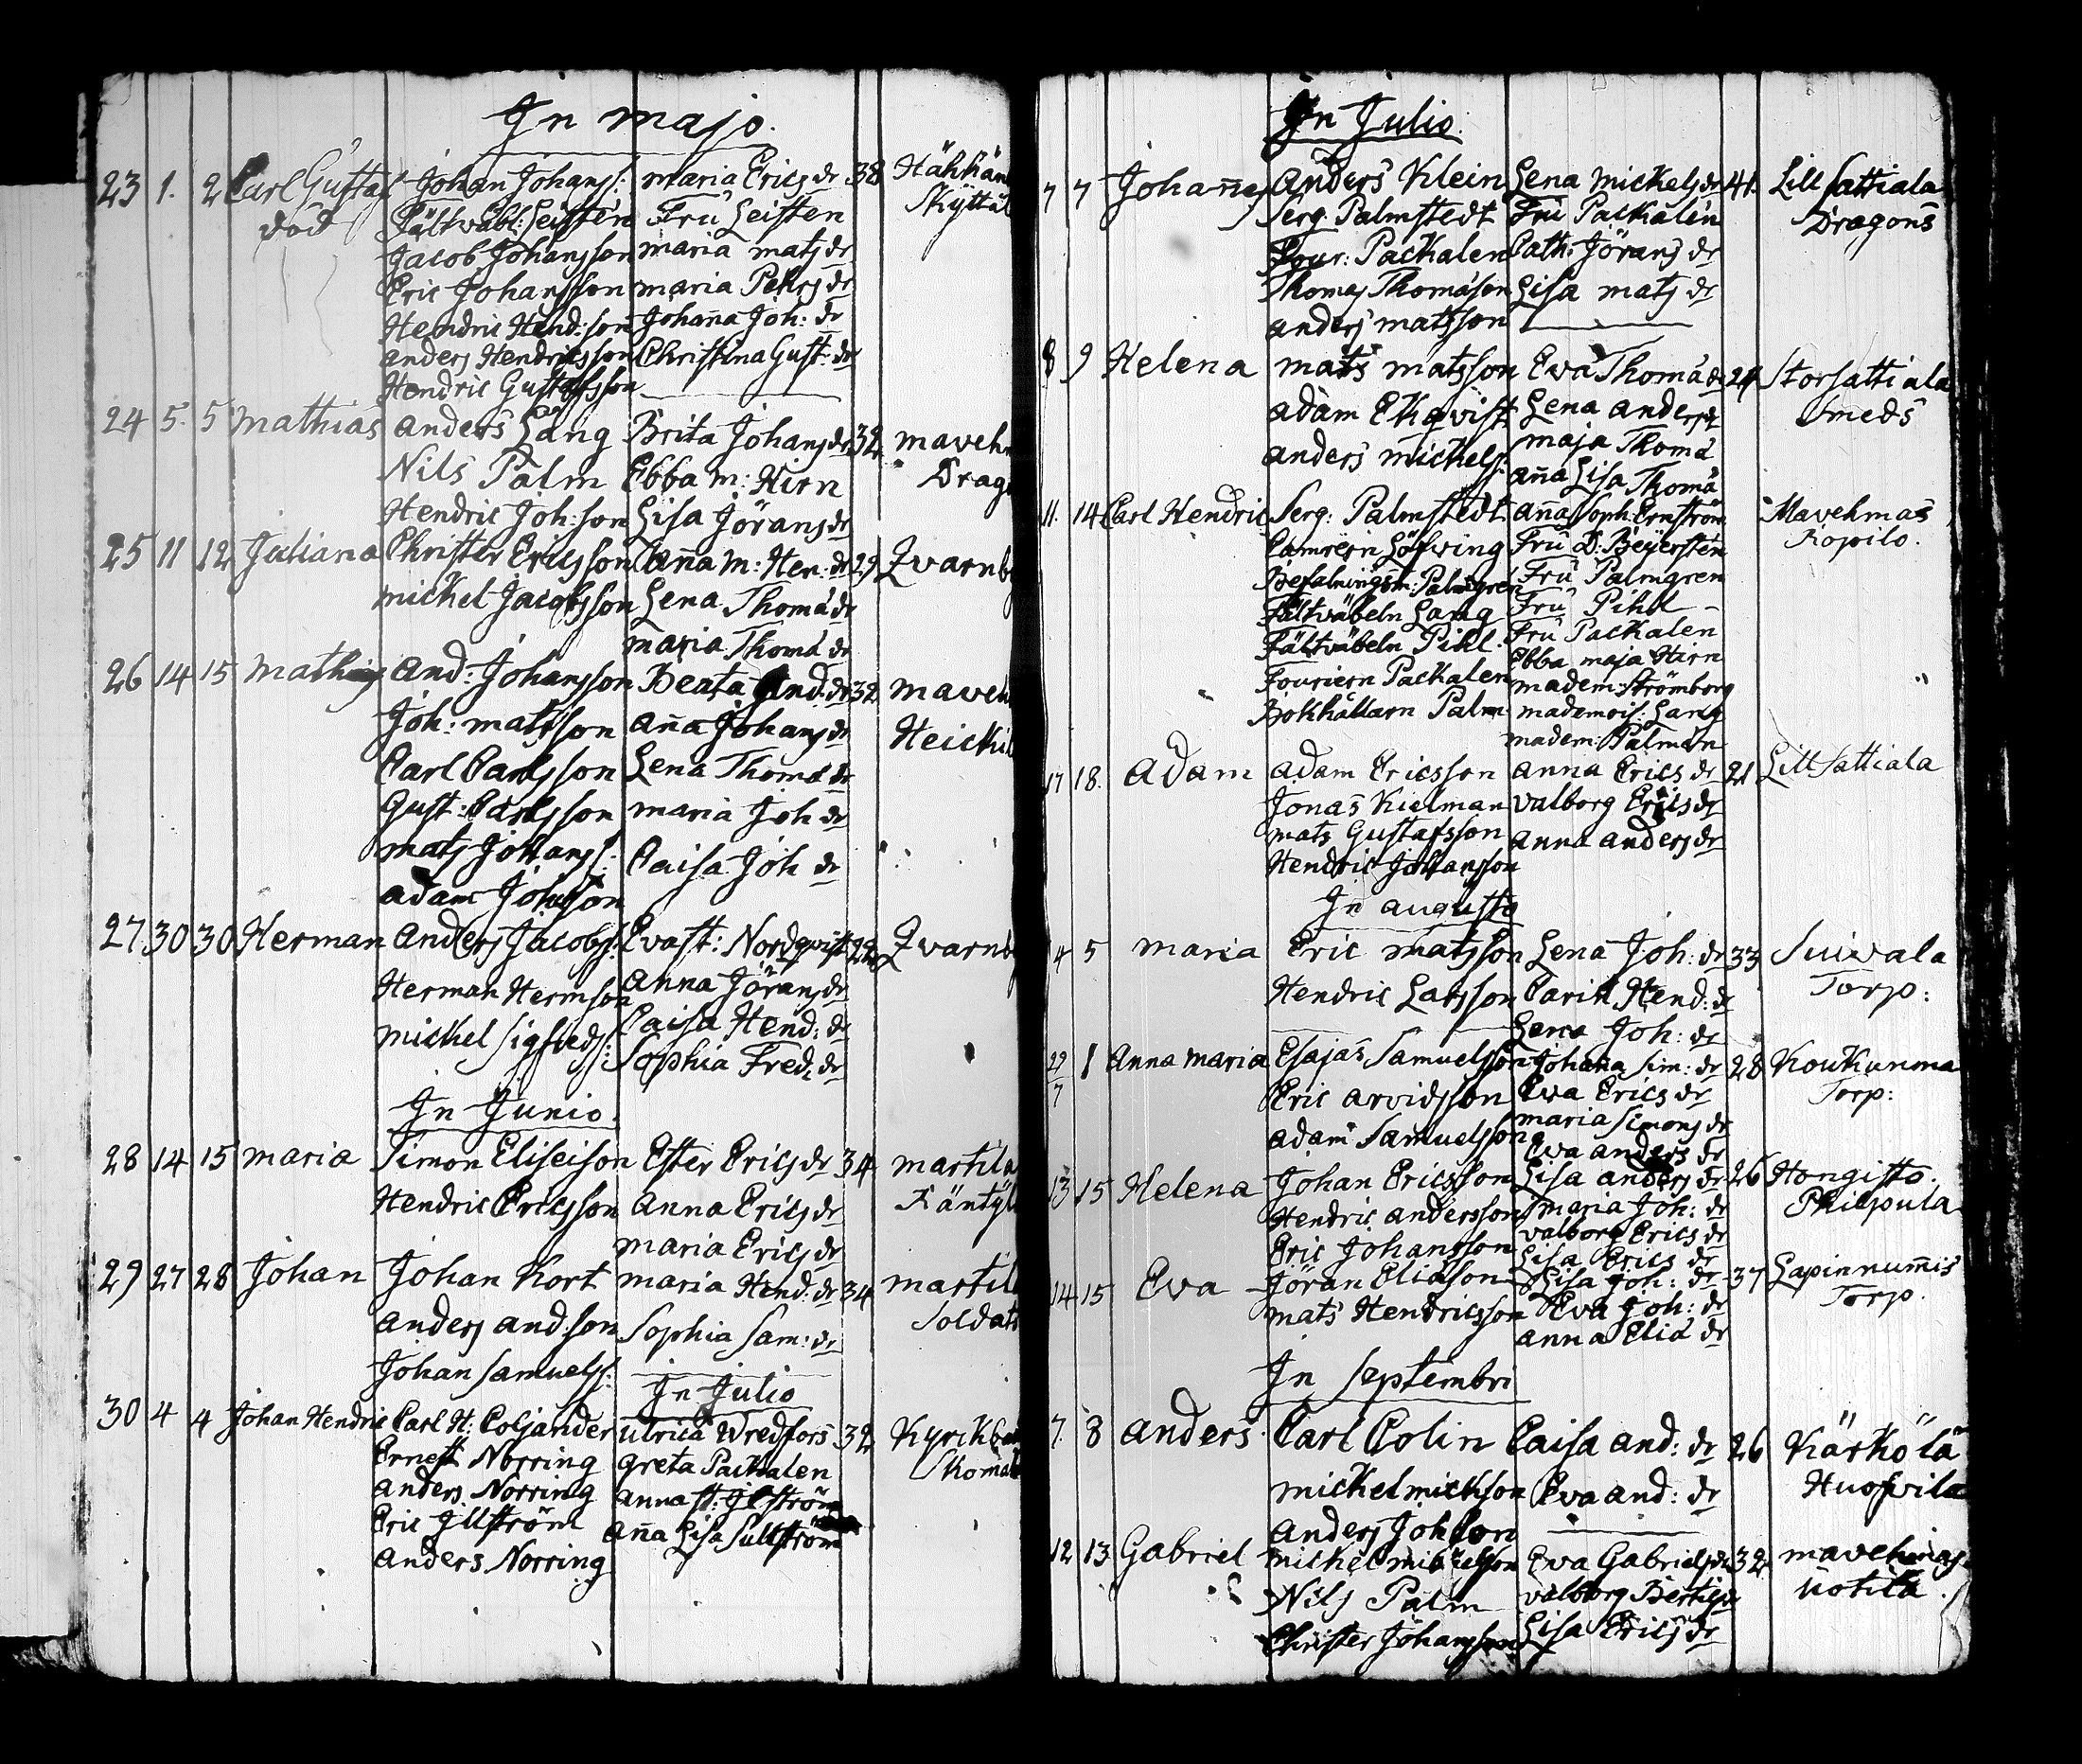 In majo.
23 1. 2 Carl Gustaf Johan Johanss: maria Erics dr 38 Hähkän
död Fältväbl: Leistén Fru Leisten Skyttäl
Jacob Johansson maria mats dr
Eric Johansson maria Pehrs dr
Hendric Hend:son Johaña Joh: dr
anders Hendricsson Christina Gust: dr
Hendric Gustafsson
24 5. 5 mathias anders Lang Brita Johans dr 32 maveh
Nils Palm Ebba m: Hirn Drag
Hendric Joh:son Lisa Jörans dr
25 11 12 Juliana Christer Ericsson Aña m: Hen: dr 29 Qvarnb
michel Jacobsson Lena Thoma dr
maria Thoma dr
26 14 15 mathias and: Johansson Beata And: dr 32 maveh
Joh: matsson aña Johans dr Heickil
Carl Carlsson Lena Thoma dr
Gust: Carlsson maria Joh dr
mats Johanss: Caisa Joh dr
adam Johsson
27 30 30 Herman anders Jacobs: Eva st: Nordqvist 22 Qvarnb
Herman Hermson anna Jörans dr
michel Sigfreds: Caisa Hend: dr
Sophia Fred: dr
In Junio.
28 14 15 maria Simon Eliseison Ester Erics dr 34 martila
Hendric Ericsson anna Erics dr Käntyl
maria Erics dr
29 27 28 Johan Johan Kort maria Hend: dr 34 martil
anders and:son Sophia Sam: dr Soldat
Johan Samuelss:
In Julio
30 4 4 Johan Hendric Carl H: Coljander ulrica Wredfors 32 Kyrckb
Ernest Norring greta Packalen Komab
anders Norring anna st: Jlström
Eric Jllström aña Lisa Sullström
anders Norring
In Julio.
7 7 Johañes Anders Klein Lena Mickels dr 41. Lill Sattiala
Serg: Palmstedt Fru Packalén Dragons
Four: Packalen Cath: Jörans dr
Thomas Thomason Lisa mats dr
anders matsson
8 9 Helena mats matsson Eva Thoma dr 24 Storsattiala
adam Ekqvist Lena anders dr Smeds
anders michels: maja Thoma
aña Lisa Thoma
11. 14 Carl Hendric Serg: Palmstedt aña Soph: Ernström Mavehmas
Camrern Löfving Fru D: Beijerstén Kopilo.
Befalningsm: Palmgren Fru Palmgren
Fältväbeln Lang Fru Pihl
Fältväbeln Pihl. Fru Packalen
Fouriern Packalen Ebba maja Hirn
Bokhållarn Palm madem: Strömborg
mademois: Lang
madem: Palman
17 18. adam adam Ericsson anna Erics dr 21 Lill Sattiala
Jonas Kielman valborg Erics dr
mats Gustafsson anna anders dr
Hendric Johansson
In augusto
14 5 maria Eric matsson Lena Joh: dr 33 Suivala
Hendric Larsson Carin Hend: dr Torp:
Lena Joh: dr
29/7 1 Anna maria Esajas Samuelsson Johaña Sim: dr 28 Koukunma
Eric arvidsson Eva Erics dr Torp:
adam Samuelsson maria Simons dr
Eva anders dr
13 15 Helena Johan Ericsson Lisa anders dr 26 Hongisto.
Hendric andersson maria Joh: dr Philpula
Eric Johansson valborg Erics dr
Lisa Erics dr
14 15 Eva Jöran Eliason Lisa Joh: dr 37 Lapinnum̃is
mats Hendricsson Eva Joh: dr Torp.
anna Elia dr
In Septembri
7. 8 anders Carl Colin Caisa and: dr 26 Kärkölä
michel mickson Eva and: dr Huofvila
anders Johson
12 13 Gabriel michel michelsson Eva Gabriels dr 32 mavehmas
Nils Palm valborg Bertils dr uotila
Christer Johansson Lisa Erics dr